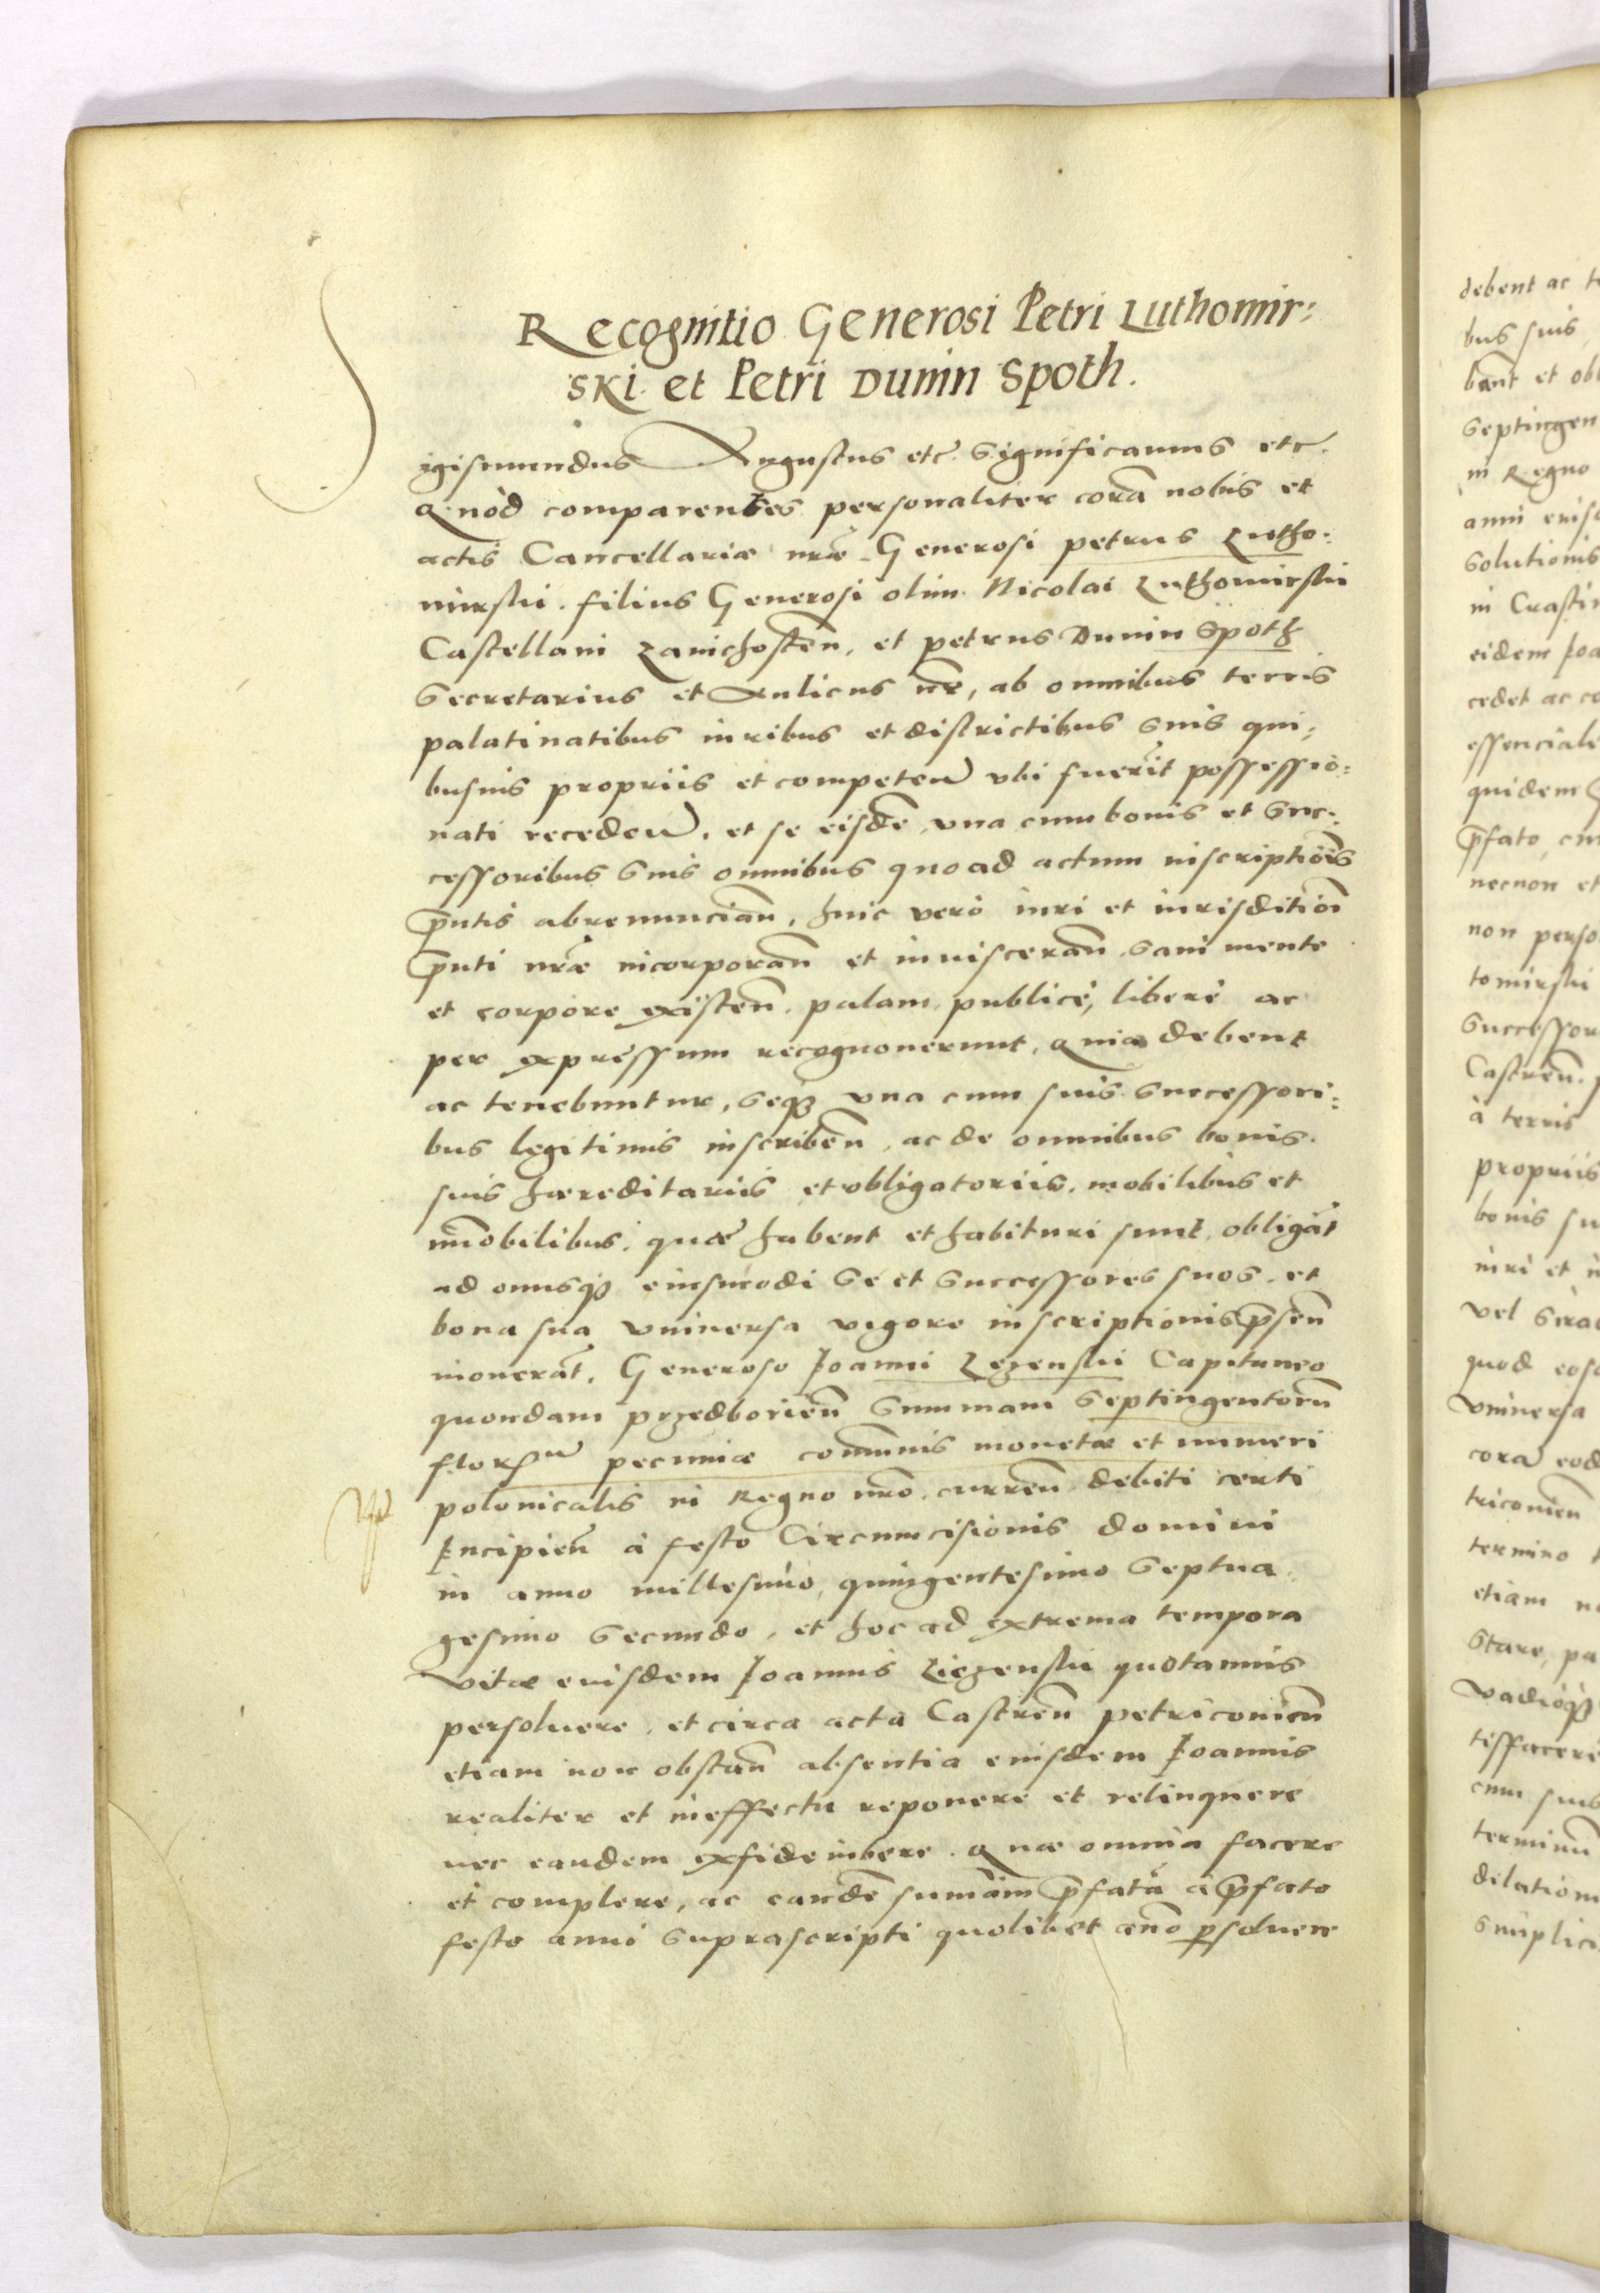 Recognitio Generosi Petri Luthomir=
ski et Petri Dunin Spoth.
Sigismundus Augustus etc. Significamus etc.
Quòd comparentes personaliter corã nobis et
actis Cancellariæ nrẽ Generosi petrus Lutho=
mirskii. filius Generosi olim Nicolai Luthomirskii
Castellani Zawichosteñ, et petrus Dunin Spoth
Secretarius et Aulicus nr̃, ab omnibus terris
palatinatibus iuribus et districtibus suis qui=
busuis propriis et competeñ vbi fuerit possessio=
nati recedeñ, et se eisdẽ vna cum bonis et suc=
cessoribus suis omnibus quo ad actum inscriptiõis
p̃ntis abrenunciañ, huic verò iuri et iurisditioñ
p̃nti nr̃æ incorporañ et inuisceran̄, sani mente
et corpore existeñ, palam, publicè, liberè ac
per expressum recognouerunt, quia debent
ac tenebuntur, seqꝫ vna cum suis successori=
bus legitimis inscribeñ, ac de omnibus bonis
suis hæreditariis et obligatoriis, mobilibus et
im̃obilibus, quæ habent et habituri sunt, obligãt
ad onusqꝫ eiusmodi se et successores suos, et
bona sua vniuersa vigore inscriptionis p̃señ
inouerãt, Generoso Joanni Lezenskii Capitaneo
quondam przedborieñ summam septingentorũ
flor pecuniæ com̃unis monetæ et numeri
polonicalis in Regno nr̃o curreñ, debiti certi
Incipieñ à festo Circumcisionis domini
in anno millesimo, quingentesimo septua
gesimo secundo, et hoc ad extrema tempora
vitæ eiusdem Joannis Liezenskii quotannis
persoluere, et circa acta Castreñ petriconieñ
etiam non obstañ absentia eiusdem Joannis
realiter et in effectu reponere et relinquere
nec eandem exfideiubere. Quæ omnia facere
et complere, ac eandẽ sum̃am p̃fatã à p̃fato
festo anni suprascripti quolibet an̄o p̱soluere
debent ac
bus suis
bunt et obl
septingen
in Regno
anni
solutionis
in Crastin
eidem Joa
cedet ac co
essenciali
quidem
p̃fato, cu
necnon et
non perso
tomirskii
successor
Castreñ
à terris
propriis
bonis su
iuri et i
vel
quod eosd
vniuersa
corã eod
triconieñ
termino
etiam no
stare, pa
vadioqꝫ
tisfacere
cum suis
terminũ
dilation
simplici